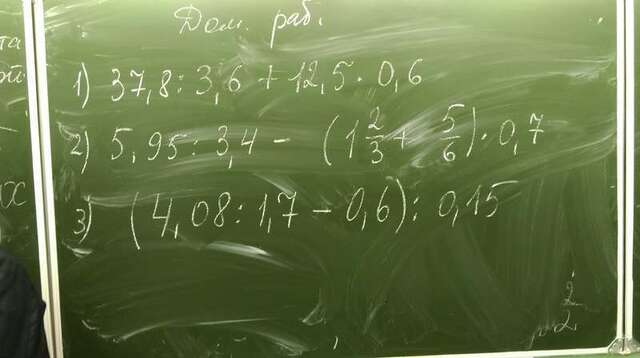 Дом. раб.
та
ой
1) 37,8 : 3,6 + 12,5 · 0,6
2) 5,95 : 3,4 - (1 2/3 + 5/6) · 0,7
3) (4,08 : 1,7 - 0,6) : 0,15